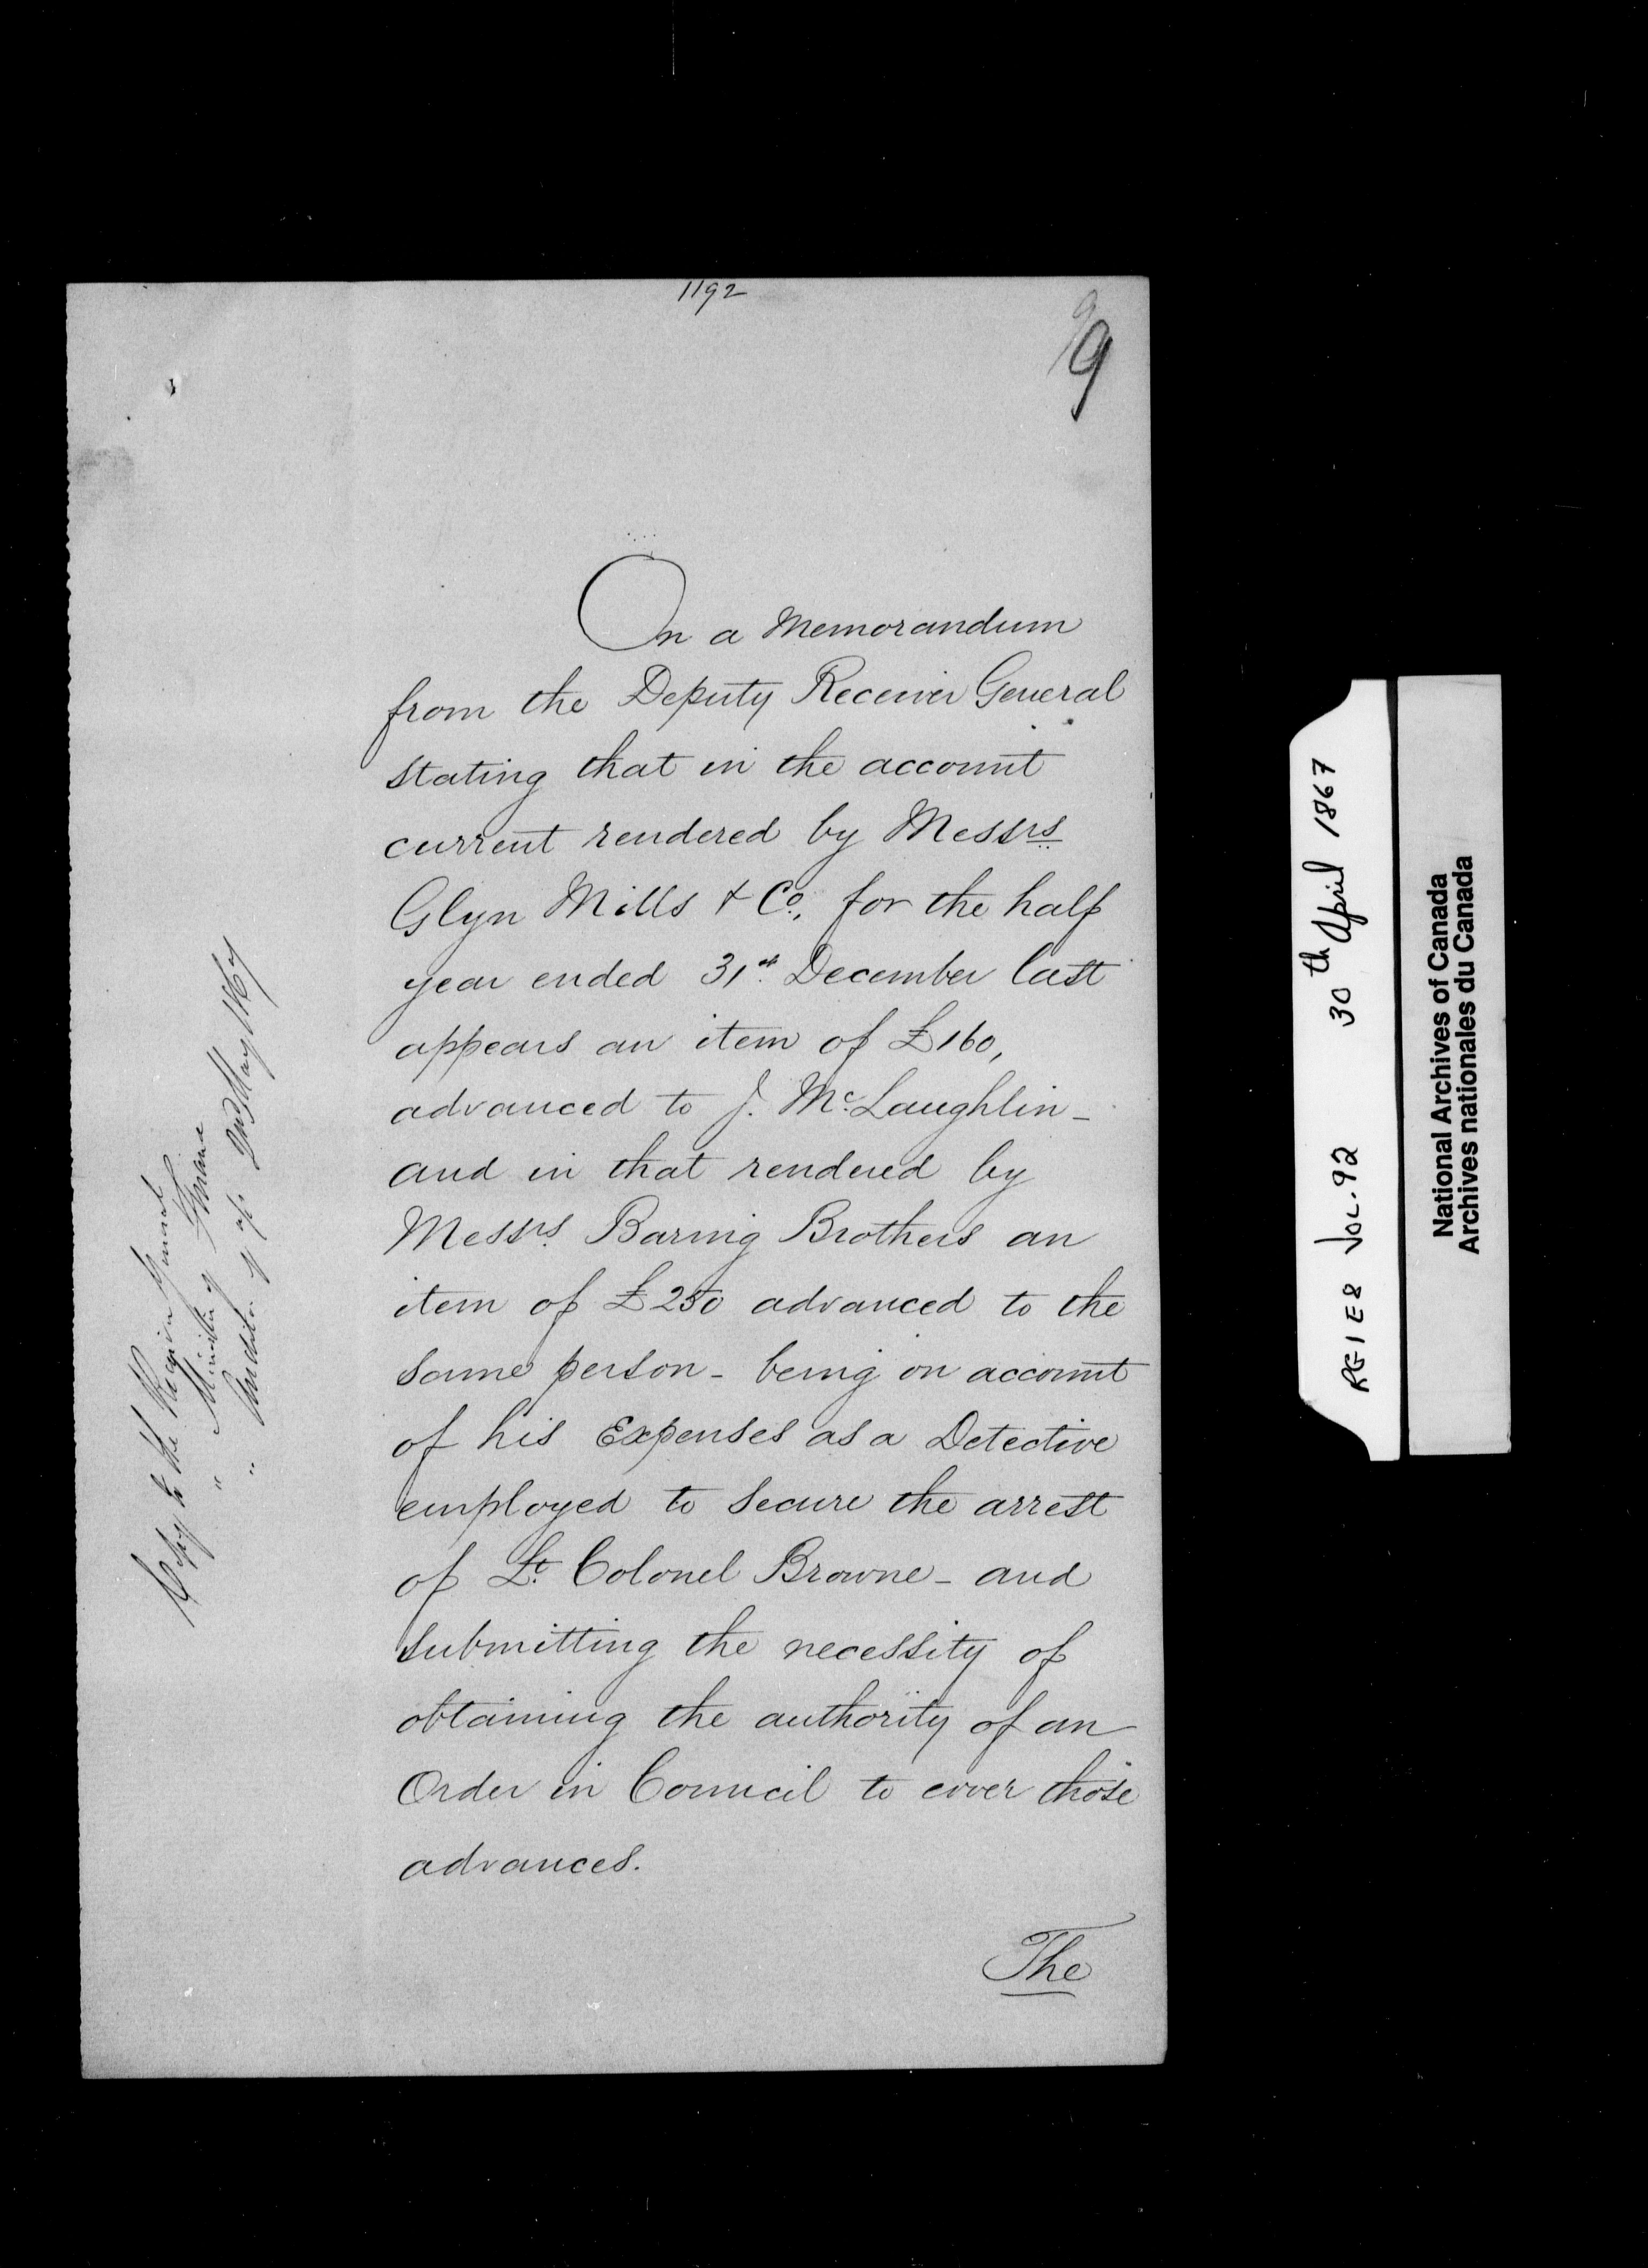 1192
9
On a Memorandum
from the Deputy Receiver General
stating that in the account
current rendered by Messrs
Glyn Mills & Co., for the half
year ended 31st December last
appears an item of £160,
advanced to J. McLaughlin -
and in that rendered by
Messrs Baring Brothers an
item of £250 advanced to the
same person - being on account
of his Expenses as a Detective
employed to secure the arrest
of Lt. Colonel Browne - and
submitting the necessity of
obtaining the authority of an
Order in Council to cover those
advances.
The
Copy to the Receiver General
" Minister of Finance
" Auditor 2nd May 1867
RG1E8 VOL.92 30th April 1867
National Archives of Canada
Archives nationales du Canada